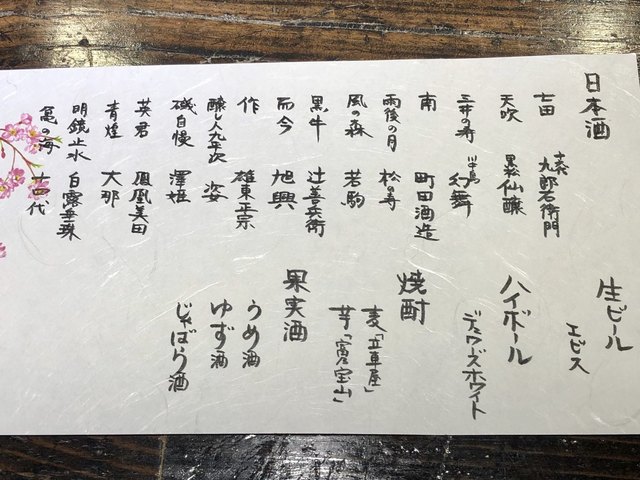 日本酒
七田 十六代九郎右衛門
天吹 黒松仙醸
三井の寿 川中島幻舞
南 町田酒造
雨後の月 松の寿
風の森 若駒
黒牛 辻善兵衛
而今 旭興
作 雄東正宗
醸し人九平次 姿
磯自慢 澤姫
英君 鳳凰美田
青煌 大那
明鏡止水 白露垂珠
亀の海 十四代
生ビール
ヱビス
ハイボール
デュワーズホワイト
焼酎
麦「兼八」
芋「富乃宝山」
果実酒
うめ酒
ゆず酒
じゃばら酒